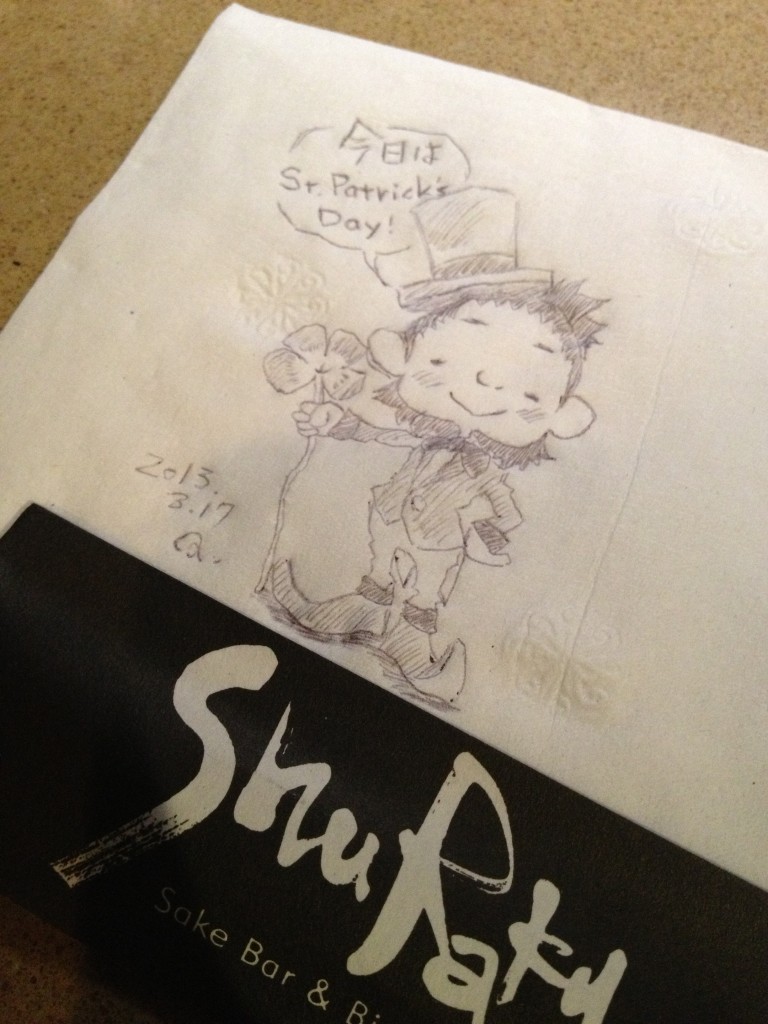 今日は
St. Patrick's
Day!
2013.
3.17
ShuRaku
Sake Bar & Bi